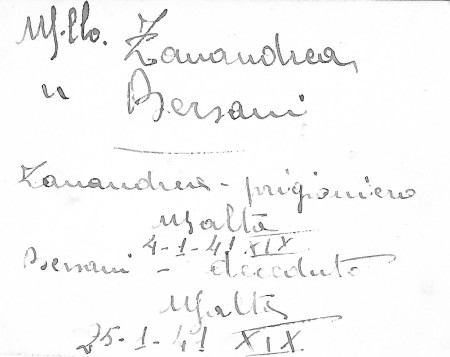 M.llo. Zanandrea
" Bersani
Zanandrea - prigioniero
Malta
4-1-41 XIX
Bersani - deceduto
Malta
25-1-41 XIX